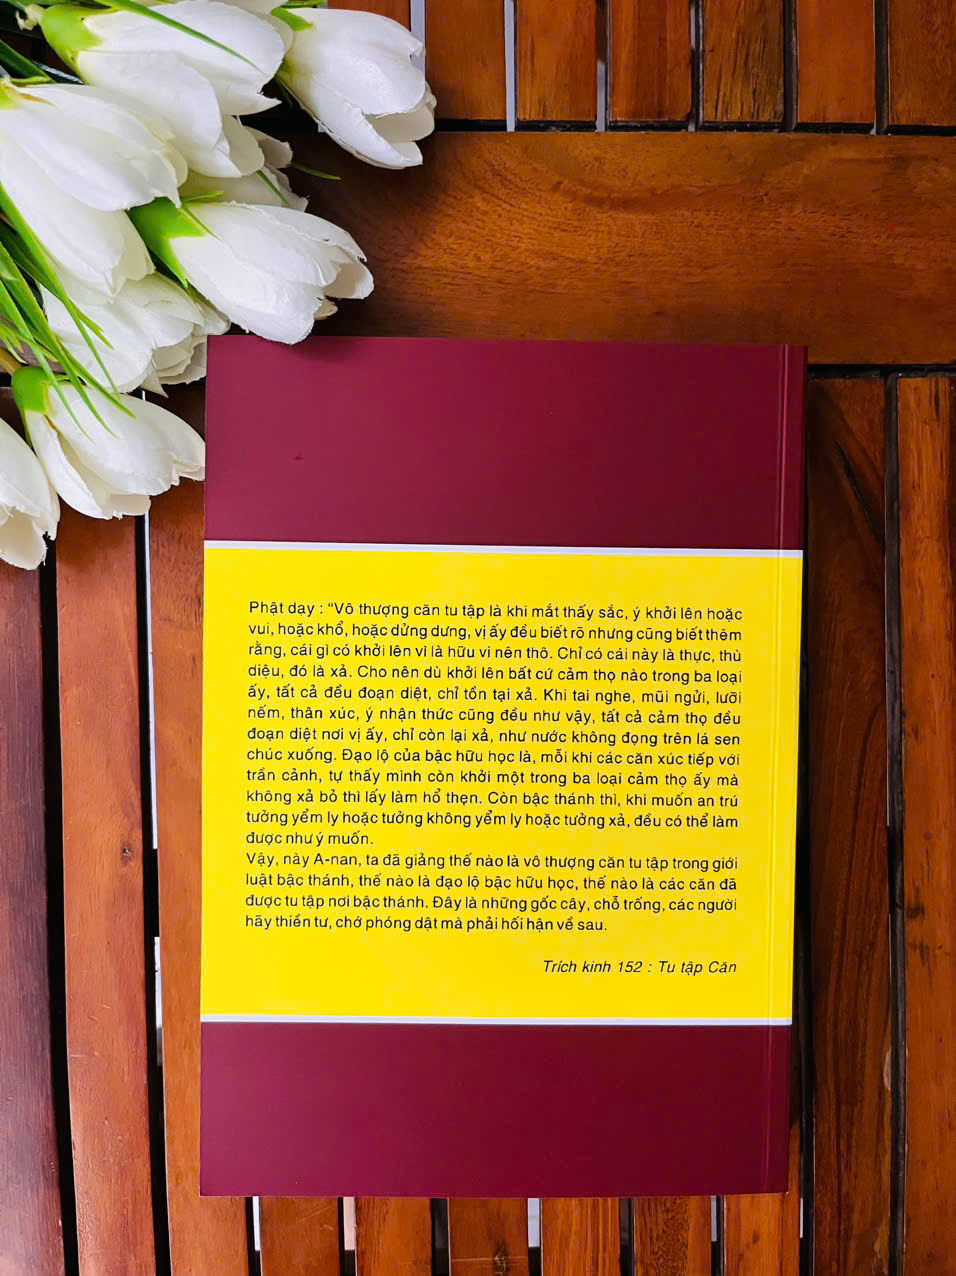 Phật dạy : “Vô thượng căn tu tập là khi mắt thấy sắc, ý khởi lên hoặc
vui, hoặc khổ, hoặc dửng dưng, vị ấy đều biết rõ nhưng cũng biết thêm
rằng, cái gì có khởi lên vì là hữu vi nên thô. Chỉ có cái này là thực, thù
diệu, đó là xả. Cho nên dù khởi lên bất cứ cảm thọ nào trong ba loại
ấy, tất cả đều đoạn diệt, chỉ tồn tại xả. Khi tai nghe, mũi ngửi, lưỡi
nếm, thân xúc, ý nhận thức cũng đều như vậy, tất cả cảm thọ đều
đoạn diệt nơi vị ấy, chỉ còn lại xả, như nước không đọng trên lá sen
chúc xuống. Đạo lộ của bậc hữu học là, mỗi khi các căn xúc tiếp với
trần cảnh, tự thấy mình còn khởi một trong ba loại cảm thọ ấy mà
không xả bỏ thì lấy làm hổ thẹn. Còn bậc thánh thì, khi muốn an trú
tưởng yểm ly hoặc tưởng không yểm ly hoặc tưởng xả, đều có thể làm
được như ý muốn.
Vậy, này A-nan, ta đã giảng thế nào là vô thượng căn tu tập trong giới
luật bậc thánh, thế nào là đạo lộ bậc hữu học, thế nào là các căn đã
được tu tập nơi bậc thánh. Đây là những gốc cây, chỗ trống, các người
hãy thiền tư, chớ phóng dật mà phải hối hận về sau.
Trích kinh 152 : Tu tập Căn